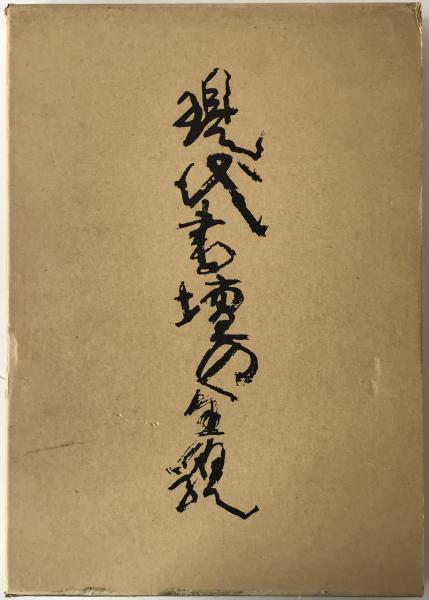 現代書壇の全貌